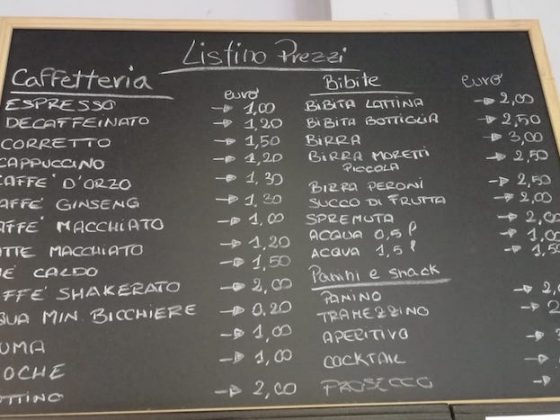 Listino Prezzi
Caffetteria euro
ESPRESSO → 1,00
DECAFFEINATO → 1,20
CORRETTO → 1,50
CAPPUCCINO → 1,20
CAFFE' D'ORZO → 1,30
CAFFE' GINSENG → 1,30
CAFFE' MACCHIATO → 1,00
LATTE MACCHIATO → 1,20
CALDO → 1,50
CAFFE' SHAKERATO → 2,00
ACQUA MIN. BICCHIERE → 0,20
→ 1,00
→ 1,00
→ 2,00
Bibite euro
BIBITA LATTINA → 2,00
BIBITA BOTTIGLIA → 2,50
BIRRA → 3,00
BIRRA MORETTI PICCOLA → 2,50
BIRRA PERONI → 2,50
SUCCO DI FRUTTA → 2,00
SPREMUTA → 2,00
ACQUA 0,5 l → 1,00
ACQUA 1,5 l → 1,50
Panini e snack
PANINO
TRAMEZZINO
APERITIVO
COCKTAIL
PROSECCO